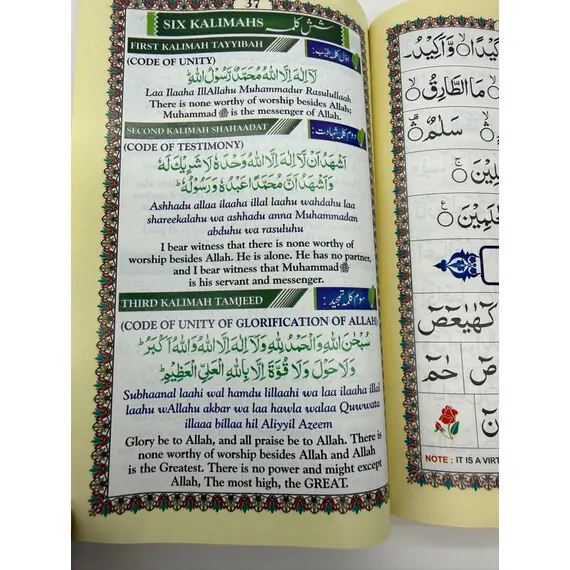 37
SIX KALIMAHS شش کلمہ
FIRST KALIMAH TAYYIBAH اوّل کلمہ طیّب :
(CODE OF UNITY)
لَا اِلٰهَ اِلَّا اللهُ مُحَمَّدٌ رَّسُوْلُ اللهِ
Laa Ilaaha IllAllahu Muhammadur Rasulullaah
There is none worthy of worship besides Allah;
Muhammad ﷺ is the messenger of Allah.
SECOND KALIMAH SHAHAADAT دوم کلمہ شہادت :
(CODE OF TESTIMONY)
اَشْهَدُ اَنْ لَّا اِلٰهَ اِلَّا اللهُ وَحْدَهٗ لَا شَرِيْكَ لَهٗ
وَاَشْهَدُ اَنَّ مُحَمَّدًا عَبْدُهٗ وَرَسُوْلُهٗ
Ashhadu allaa ilaaha illal laahu wahdahu laa
shareekalahu wa ashhadu anna Muhammadan
abduhu wa rasuluhu
I bear witness that there is none worthy of
worship besides Allah. He is alone. He has no partner,
and I bear witness that Muhammad ﷺ
is his servant and messenger.
THIRD KALIMAH TAMJEED سوم کلمہ تمجید :
(CODE OF UNITY OF GLORIFICATION OF ALLAH)
سُبْحٰنَ اللهِ وَالْحَمْدُ لِلّٰهِ وَلَا اِلٰهَ اِلَّا اللهُ وَاللهُ اَكْبَرُ
وَلَا حَوْلَ وَلَا قُوَّةَ اِلَّا بِاللهِ الْعَلِيِّ الْعَظِيْمِ
Subhaanal laahi wal hamdu lillaahi wa laa ilaaha illal
laahu wAllahu akbar wa laa hawla walaa Quwwata
illaaa billaa hil Aliyyil Azeem
Glory be to Allah, and all praise be to Allah. There is
none worthy of worship besides Allah and Allah
is the Greatest. There is no power and might except
Allah, The most high, the GREAT.
كَيْدًا وَّاَكِيْدُ
مَا الطَّارِقُ
سَلٰمٌ
كٓهٰيٰعٓصٓ
صٓ حٰمٓ
NOTE : IT IS A VIRT